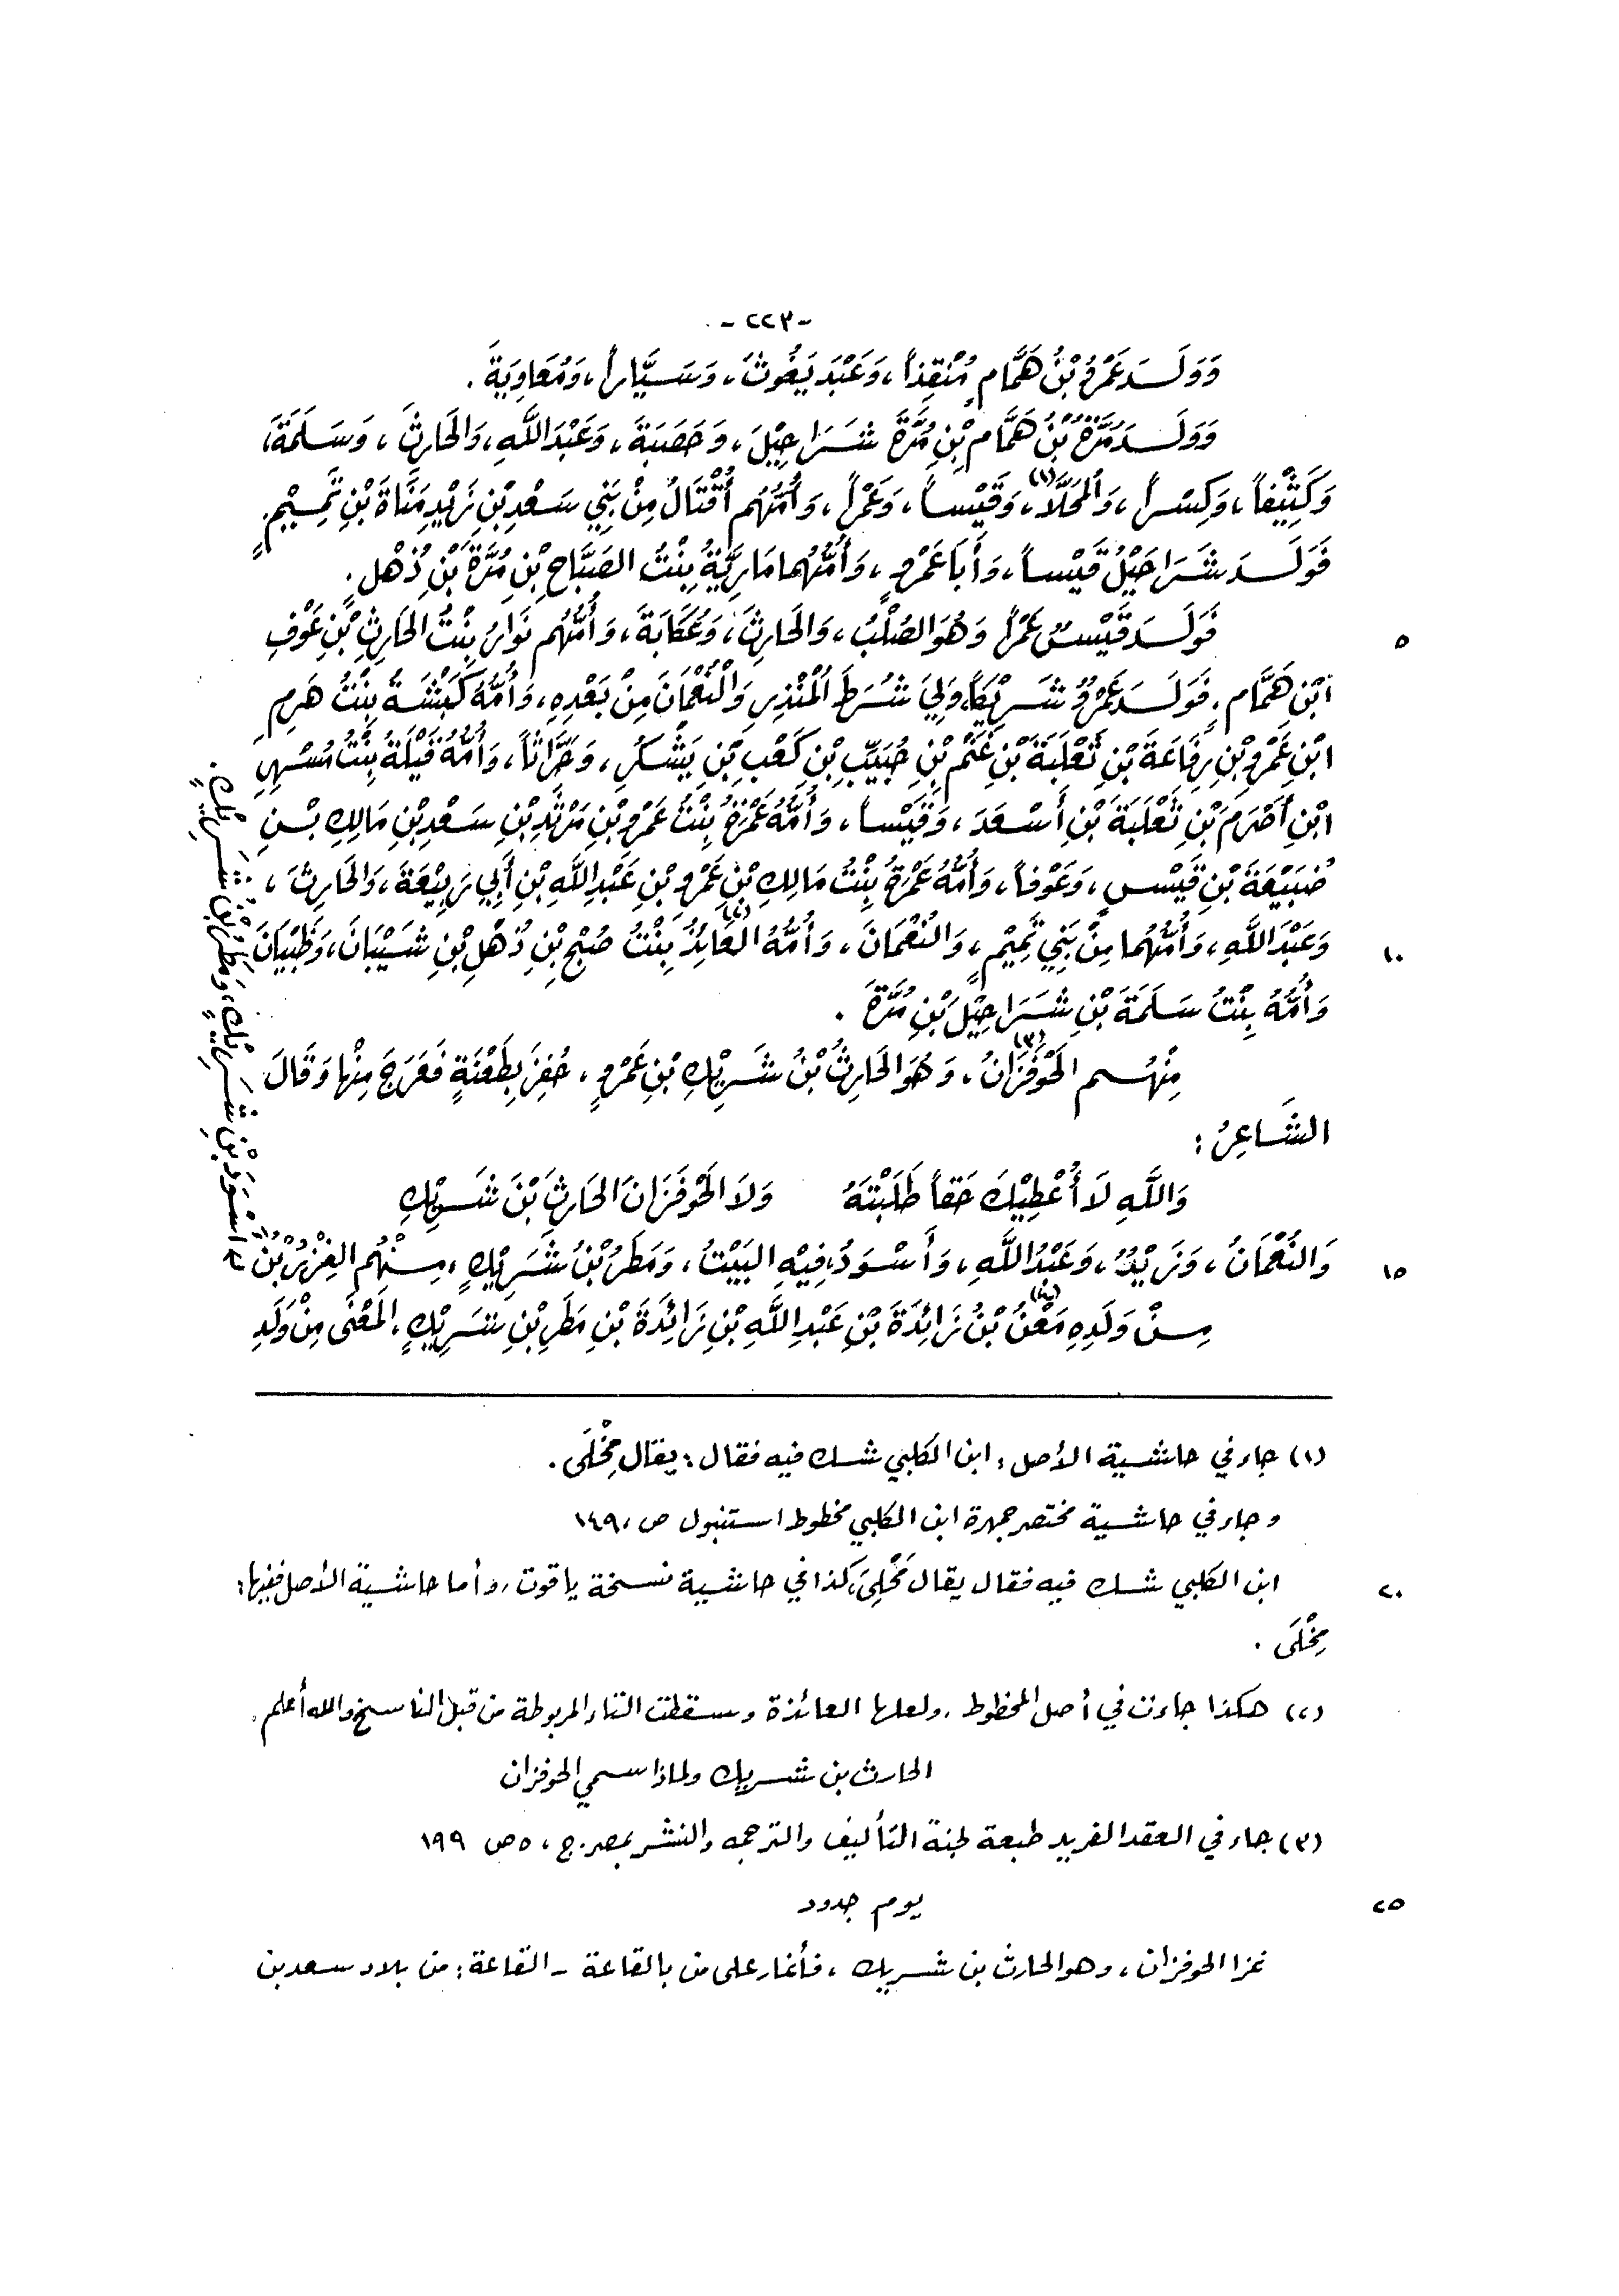 -٢٢٣-
وَوَلَـدَ عَمْرُو بْنُ هَمَّامٍ مُنْقِذاً، وَعَبْدَ يَغُوثَ، وَسَيَّاراً، وَمُعَاوِيَةَ.
وَوَلَـدَ مُرَّةُ بْنُ هَمَّامِ بْنِ مُرَّةَ شَرَاحِيْلَ، وَحَصَبَةَ، وَعَبْدَ اللَّهِ، وَالحَارِثَ، وَسَلَمَةَ،
وَكَثِيْفاً، وَكِسْراً، وَالمُحَلَّا(١)، وَقَيْساً، وَعَمْراً، وَأُمُّهُم أُقْتَالُ مِنْ بَنِي سَعْدِ بْنِ زَيْدِ مَنَاةَ بْنِ تَمِيْمٍ.
فَوَلَـدَ شَرَاحِيْلُ قَيْساً، وَأَبَا عَمْرٍو، وَأُمُّهُما مَارِيَّةُ بِنْتُ الصَّبَّاحِ بْنِ مُرَّةَ بْنِ ذُهْلٍ.
فَوَلَـدَ قَيْسٌ عَمْراً وَهُوَ الصُّلْبُ، وَالحَارِثَ، وَعُكَابَةَ، وَأُمُّهُم نَوَارُ بِنْتُ الحَارِثِ بْنِ عَوْفِ
٥
ابْنِ هَمَّامٍ. فَوَلَـدَ عَمْرُو شَرِيْكاً وَلِيَ شُرَطَ المُنْذِرِ وَالنُّعْمَانَ مِنْ بَعْدِهِ، وَأُمُّهُ كَبْشَةُ بِنْتُ هَرِمِ
ابْنِ عَمْرِو بْنِ رِفَاعَةَ بْنِ ثَعْلَبَةَ بْنِ غَنْمِ بْنِ حُبَيِّبِ بْنِ كَعْبِ بْنِ يَشْكُرَ، وَحَرَّاثاً، وَأُمُّهُ قَيْلَةُ بِنْتُ مُسْهِرِ
ابْنِ أَصْرَمَ بْنِ ثَعْلَبَةَ بْنِ أَسْعَدَ، وَقَيْساً، وَأُمُّهُ عَمْرَةُ بِنْتُ عَمْرِو بْنِ مَرْثَدِ بْنِ سَعْدِ بْنِ مَالِكِ بْنِ
ضُبَيْعَةَ بْنِ قَيْسٍ، وَعَوْفاً، وَأُمُّهُ عَمْرَةُ بِنْتُ مَالِكِ بْنِ عَمْرِو بْنِ عَبْدِ اللَّهِ بْنِ أَبِي رَبِيْعَةَ، وَالحَارِثَ،
وَعَبْدَ اللَّهِ، وَأُمُّهُما مِنْ بَنِي تَمِيْمٍ، وَالنُّعْمَانَ، وَأُمُّهُ العَائِذُ(٢) بِنْتُ صُبْحِ بْنِ ذُهْلِ بْنِ شَيْبَانَ، وَظَبْيَانَ
١٠
وَأُمُّهُ بِنْتُ سَلَمَةَ بْنِ شَرَاحِيْلَ بْنِ مُرَّةَ.
مِنْهُـم الحَوْفَزَانُ(٣)، وَهُوَ الحَارِثُ بْنُ شَرِيْكِ بْنِ عَمْرٍو، حُفِزَ بِطَعْنَةٍ فَعَرَجَ مِنْها وَقَالَ
الشَّاعِرُ:
وَاللَّهِ لَا أُعْطِيْكَ حَقاً طَلَبْتَهُ وَلَا الحَوْفَزَانَ الحَارِثَ بْنَ شَرِيْكِ
وَالنُّعْمَانُ، وَزَيْدٌ، وَعَبْدُ اللَّهِ، وَأَسْوَدُ، فِيْهِ البَيْتُ، وَمَطَرُ بْنُ شَرِيْكٍ، مِـنْهُم الغِزْرُ بْنُ
١٥
اسْوَدَ بْنِ شَرِيْكٍ، وَمَطَرُ بْنُ شَرِيْكٍ.
مِـنْ وَلَدِهِ مَعْنُ(٤) بْنُ زَائِدَةَ بْنِ عَبْدِ اللَّهِ بْنِ زَائِدَةَ بْنِ مَطَرِ بْنِ شَرِيْكٍ، المَعْنَى مِنْ وَلَدِ
(١) جاء في حاشية الأصل: ابن الكلبي شك فيه فقال: يقال مِحْلَى.
وجاء في حاشية مختصر جمهرة ابن الكلبي مخطوط استنبول ص، ١٤٩
ابن الكلبي شك فيه فقال يقال مَحْلِيَ، كذا في حاشية نسخة ياقوت، وأما حاشية الأصل ففيها:
٢٠
مِحْلَى.
(٢) هكذا جاءت في أصل المخطوط، ولعلها العائذة وسقطت التاء المربوطة من قبل الناسخ والله أعلم.
الحارث بن شريك ولماذا سمي الحوفزان
(٣) جاء في العقد الفريد طبعة لجنة التأليف والترجمه والنشر بمصر. ج، ٥ ص ١٩٩
يوم جدود
٢٥
غزا الحوفزان، وهو الحارث بن شريك، فأغار على من بالقاعة - القاعة: من بلاد سعد بن